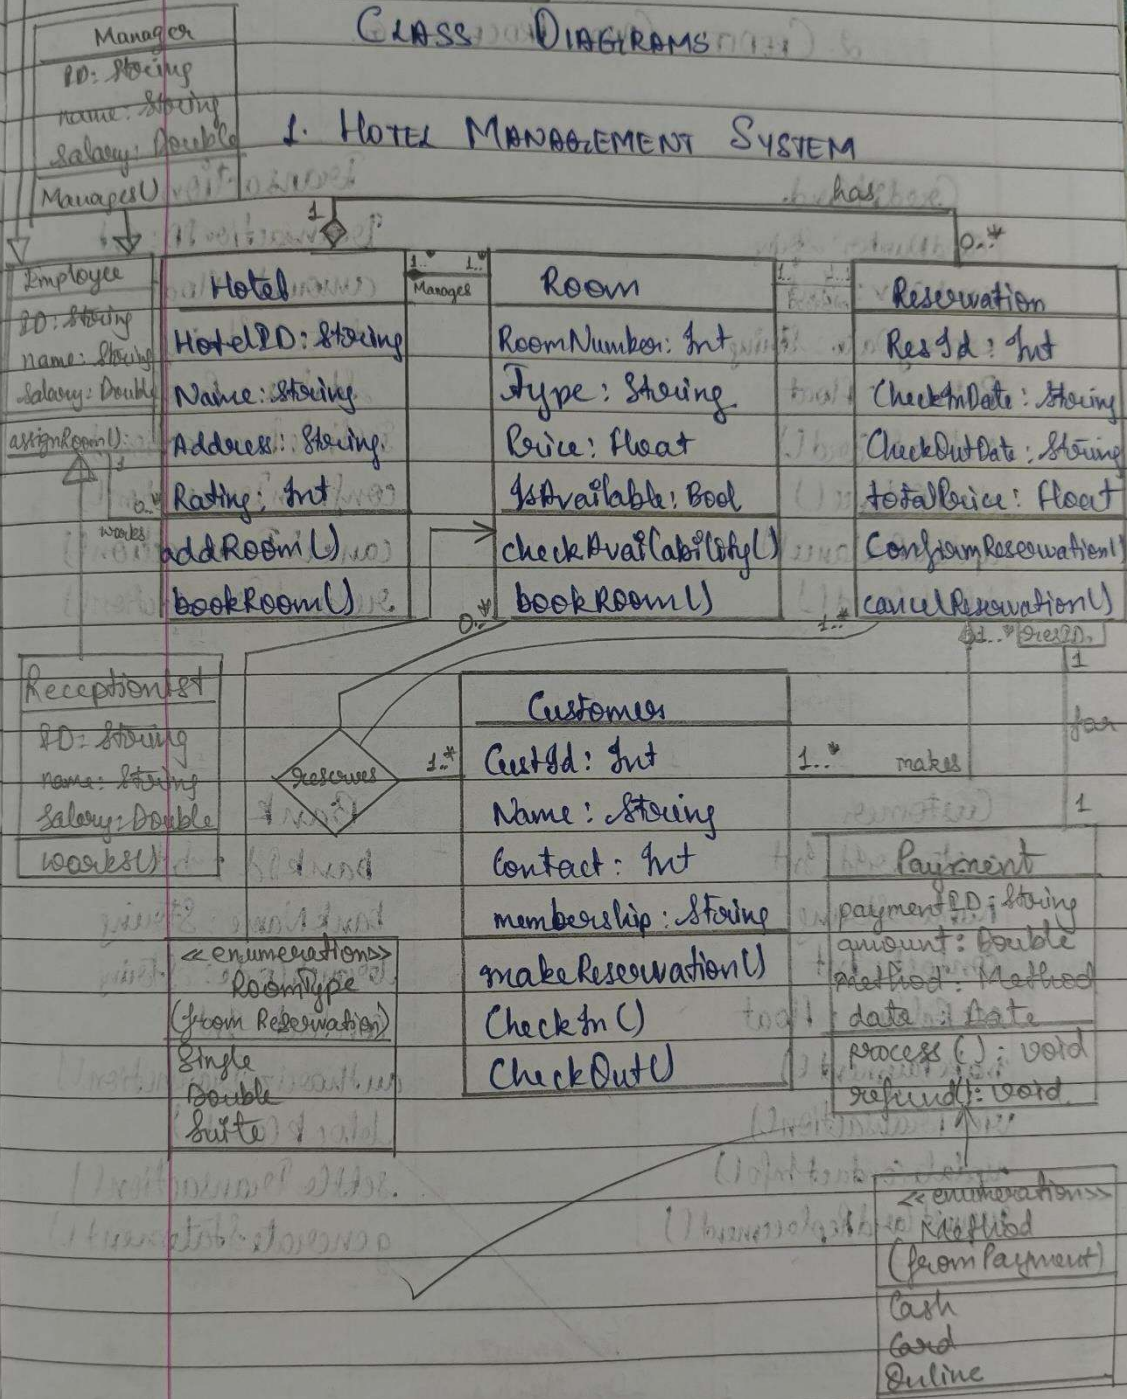 CLASS DIAGRAMS
1. HOTEL MANAGEMENT SYSTEM
Manager
ID: String
name: String
Salary: Double
Manages()
has
1
0..*
Employee
ID: String
name: String
Salary: Double
assignRoom()
1
0..*
works
Hotel
HotelID: String
Name: String
Address: String
Rating: Int
addRoom()
bookRoom()
1..*
1..*
Manages
Room
RoomNumber: Int
Type: String
Price: Float
IsAvailable: Bool
checkAvailability()
bookRoom()
Reservation
ResId: Int
CheckInDate: String
CheckOutDate: String
totalPrice: Float
ConfirmReservation()
cancelReservation()
0..*
1..*
1..*
resID
1
for
1
Receptionist
ID: String
name: String
Salary: Double
works()
reserves
1..*
Customer
CustId: Int
Name: String
Contact: Int
membership: String
makeReservation()
CheckIn()
CheckOut()
1..*
makes
Payment
paymentID: String
amount: Double
method: Method
data: Date
process(): void
refund(): void
<<enumeration>>
RoomType
(from Reservation)
Single
Double
Suite
<<enumeration>>
Method
(from Payment)
Cash
Card
Online